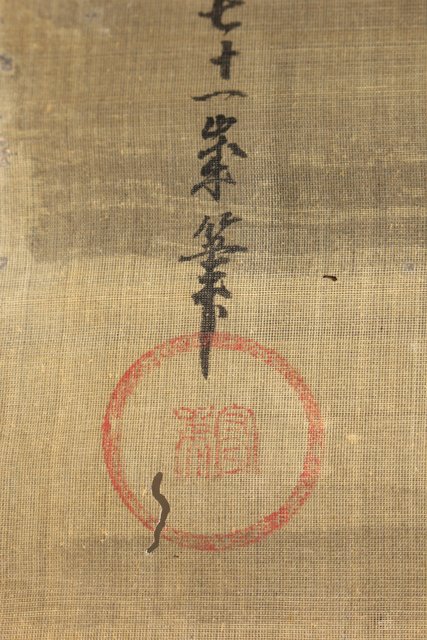 七十一歳筆